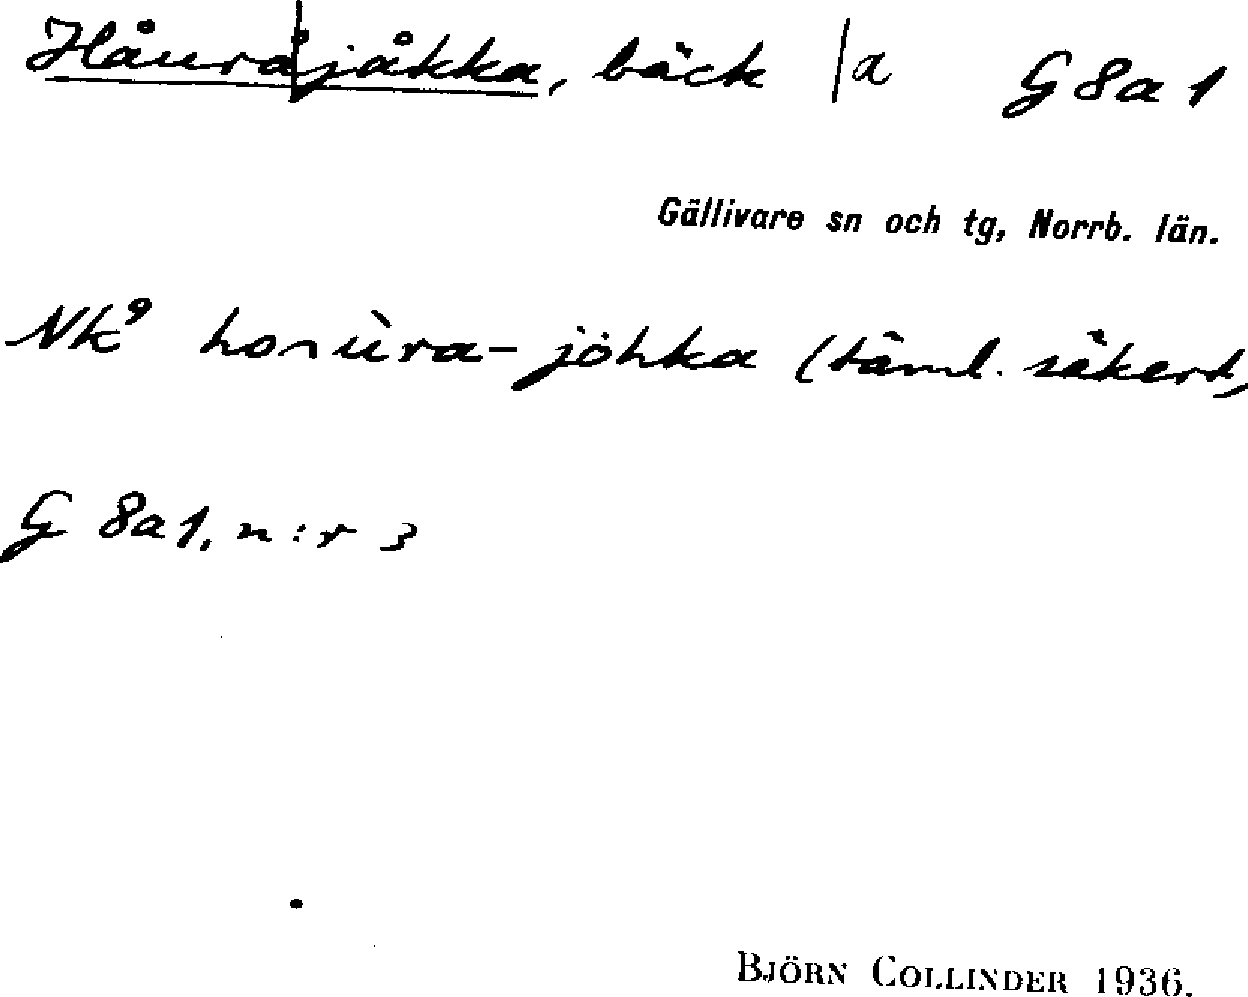 Håuråjåkka, bäck /a G 8a 1
Gällivare sn och tg, Norrb. län.
Nk⁹ jöhka (täml. säkert)
G 8a1, n:r 3
BJÖRN COLLINDER 1936.